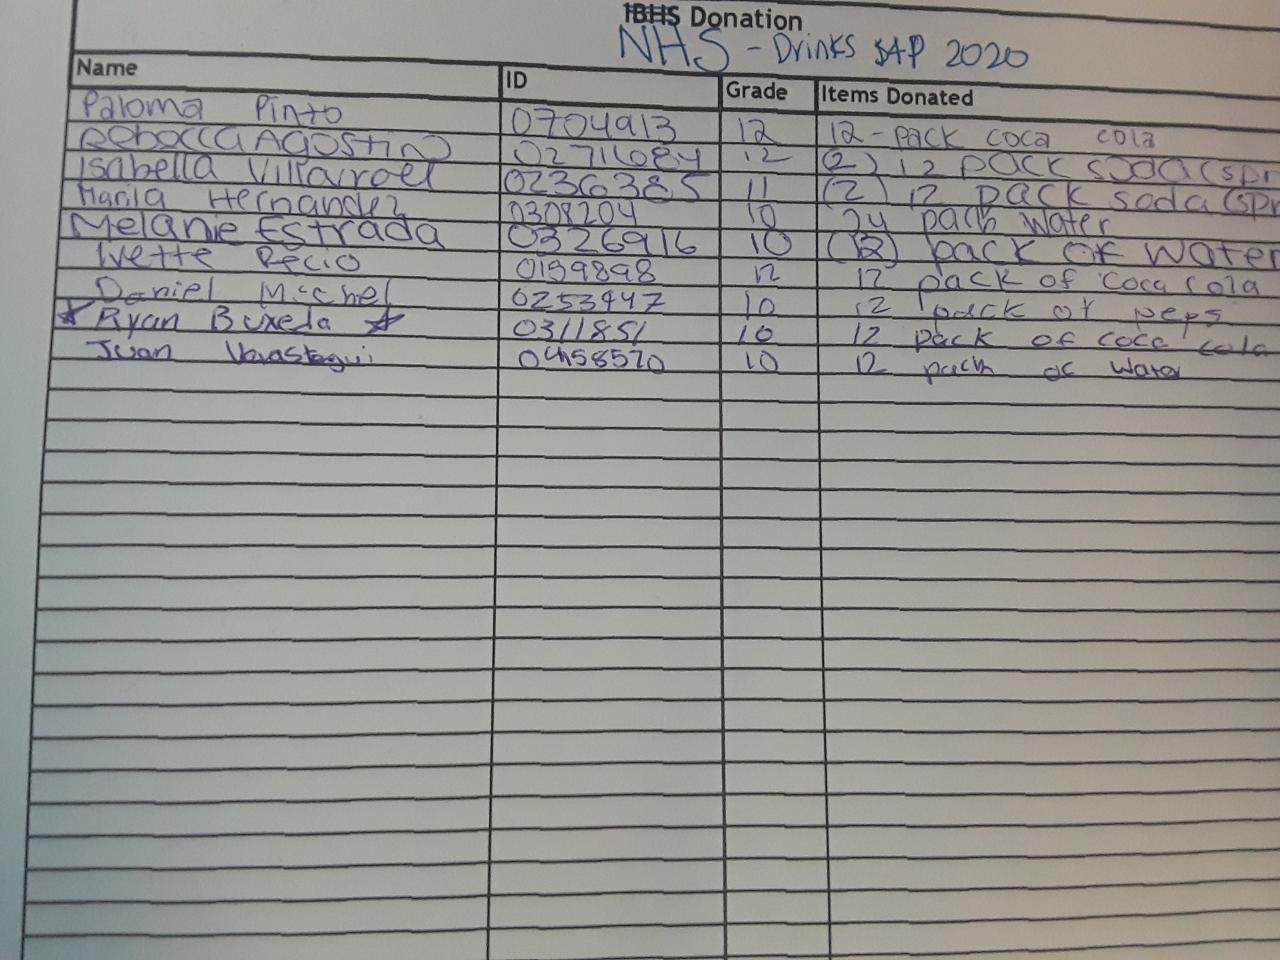 IBHS Donation
NHS - Drinks SAP 2020
Name ID Grade Items Donated
Paloma Pinto 0704913 12 12-pack coca cola
Rebecca Agostino 02711684 12 (2) 12 pack soda (spr
Isabella Villarroel 02363385 11 (2) 12 pack soda (spr
Maria Hernandez 0308204 10 24 pack water
Melanie Estrada 0326916 10 (12) pack of water
Ivette Recio 0159898 12 12 pack of coca cola
Daniel Michel 0253447 10 12 pack of peps
Ryan Buxeda 0311851 10 12 pack of coca cola
Juan 0458570 10 12 pack of water